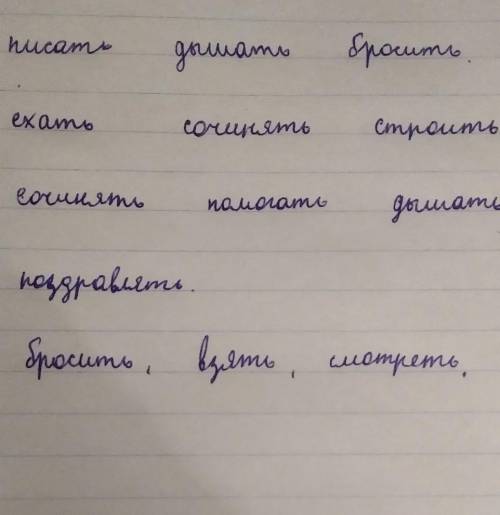 писать дышать бросить.
ехать сочинять строить
сочинять помогать дышать
поздравлять.
бросить, взять, смотреть.